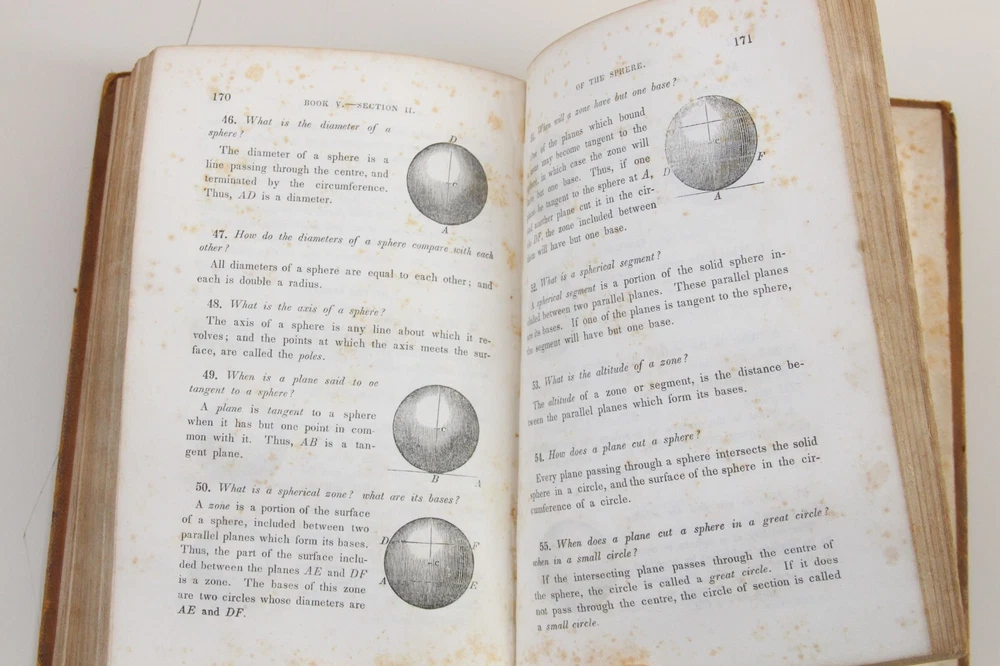 170
BOOK V.—SECTION II.
46. What is the diameter of a
sphere?
The diameter of a sphere is a
line passing through the centre, and
terminated by the circumference.
Thus, AD is a diameter.
D
C
A
47. How do the diameters of a sphere compare with each
other?
All diameters of a sphere are equal to each other; and
each is double a radius.
48. What is the axis of a sphere?
The axis of a sphere is any line about which it re-
volves; and the points at which the axis meets the sur-
face, are called the poles.
49. When is a plane said to oe
tangent to a sphere?
A plane is tangent to a sphere
when it has but one point in com-
mon with it. Thus, AB is a tan-
gent plane.
C
B
A
50. What is a spherical zone? what are its bases?
A zone is a portion of the surface
of a sphere, included between two
parallel planes which form its bases.
Thus, the part of the surface inclu-
ded between the planes AE and DF
is a zone. The bases of this zone
are two circles whose diameters are
AE and DF.
D
F
C
A
E
171
OF THE SPHERE.
When will a zone have but one base?
of the planes which bound
may become tangent to the
in which case the zone will
but one base. Thus, if one
be tangent to the sphere at A,
another plane cut it in the cir-
DF, the zone included between
will have but one base.
C
D
F
A
52. What is a spherical segment?
A spherical segment is a portion of the solid sphere in-
between two parallel planes. These parallel planes
its bases. If one of the planes is tangent to the sphere,
the segment will have but one base.
53. What is the altitude of a zone?
The altitude of a zone or segment, is the distance be-
tween the parallel planes which form its bases.
54. How does a plane cut a sphere?
Every plane passing through a sphere intersects the solid
sphere in a circle, and the surface of the sphere in the cir-
cumference of a circle.
55. When does a plane cut a sphere in a great circle?
when in a small circle?
If the intersecting plane passes through the centre of
the sphere, the circle is called a great circle. If it does
not pass through the centre, the circle of section is called
a small circle.